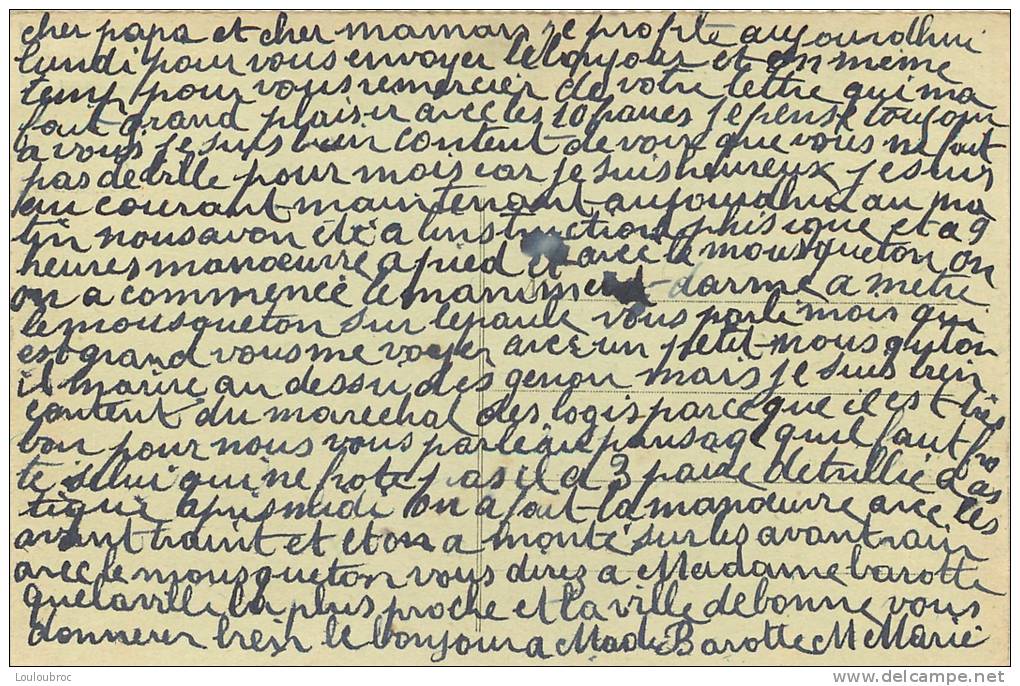 cher papa et cher maman je profite aujourdhui
lundi pour vous envoyer le bonjour et en meme
temp pour vous remercier de votre lettre qui ma
fait grand plaisir avec les 10 paues je pense toujour
a vous je suis bien content de voir que vous ne fait
pas de bille pour mois car je suis heureux je suis
au courant maintenant aujourdhui au ma
tin nous avon été a linstruction phisique et a 9
heures manœuvre a pied et avec le mousqueton on
on a commencé le maniment darme a metre
le mousqueton sur lepaule vous parle mois qui
est grand vous me voyer avec un petit mousquton
il marive au dessu des genou mais je suis bien
content du marechal des logis parceque il est tré
bon pour nous vous parle du pansage quil faut fro
té selui qui ne frote pas il a 3 paire de trellié a as
tiqué apres midi on a fait la manœuvre avec les
avant traint et et on a monté sur les avantrain
avec le mousqueton vous direz a Madame barotte
que la ville la plus proche et la ville de bonne vous
donnerer bien le bonjour a Made Barotte M Marie
Louloubroc
www.delcampe.net